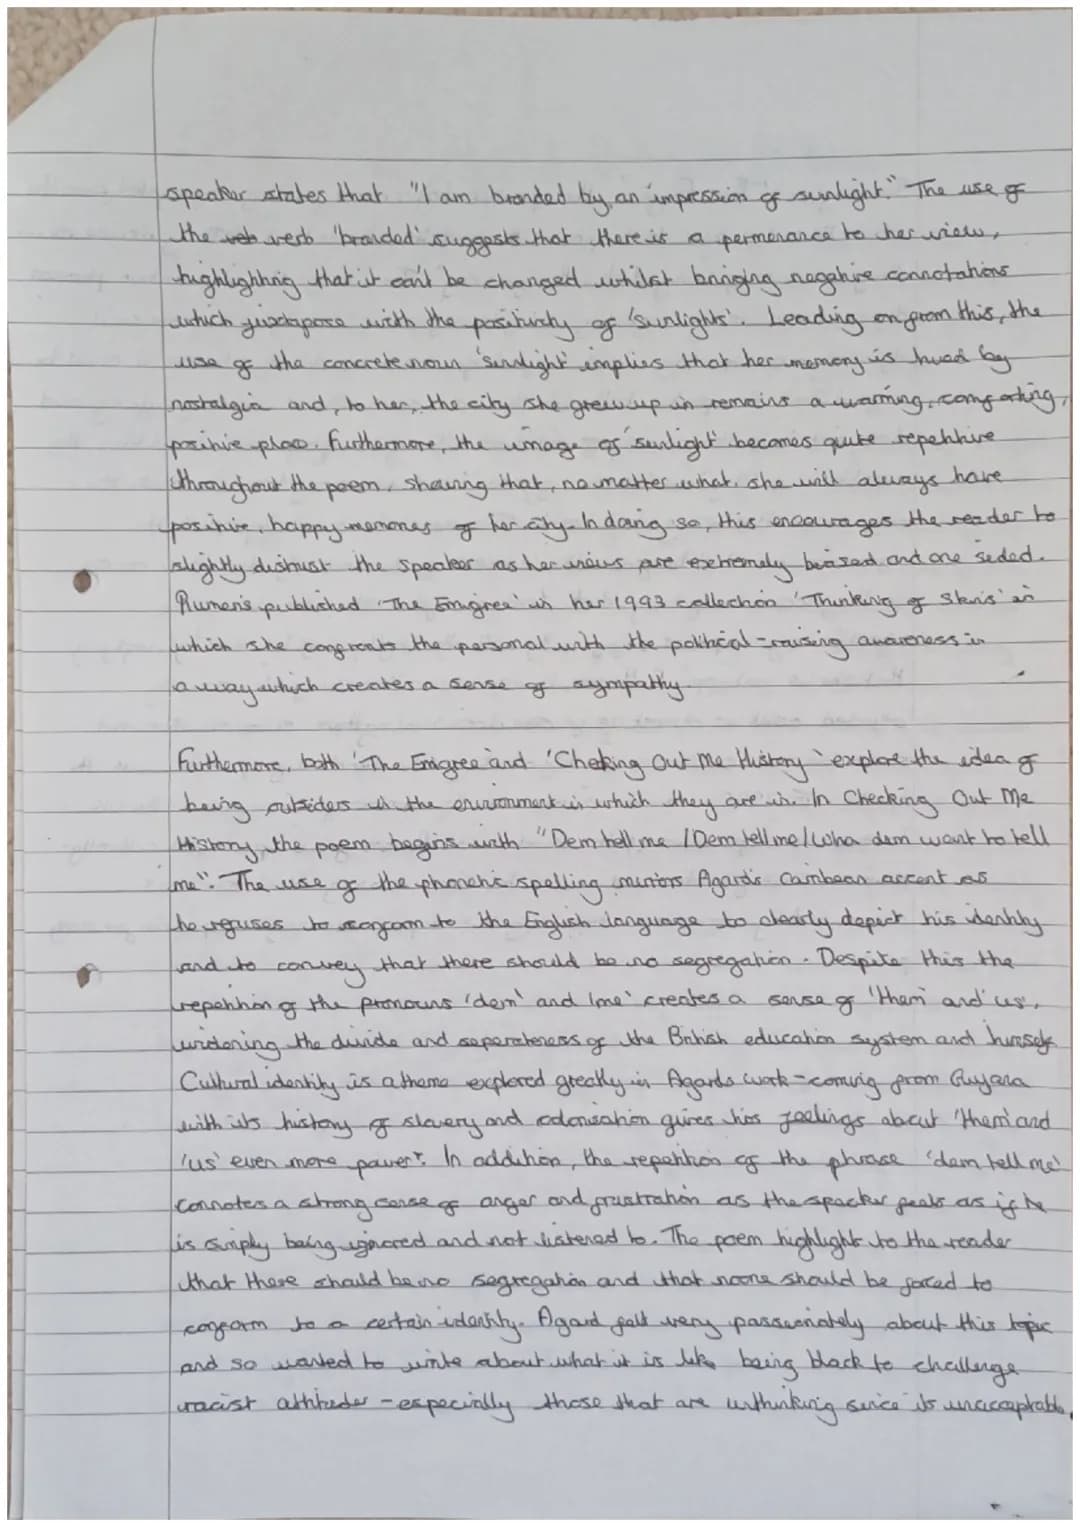 speaker states that "I am branded by an impression of sunlight." The use of
the verb 'branded' suggests that there is a permenance to her view,
highlighting that it can't be changed whilst bringing negative connotations
which juxtapose with the positivity of 'sunlights'. Leading on from this, the
use of the concrete noun 'sunlight' implies that her memory is hued by
nostalgia and, to her, the city she grew up in remains a warming, comforting,
positive place. Furthermore, the image of 'sunlight' becomes quite repetitive
throughout the poem, showing that, no matter what, she will always have
positive, happy memories of her city. In doing so, this encourages the reader to
slightly distrust the speaker as her views are extremely biased and one sided.
Rumens published 'The Emigree' in her 1993 collection 'Thinking of Skins' in
which she confronts the personal with the political - raising awareness in
a way which creates a sense of sympathy.
Furthermore, both 'The Emigree and 'Checking Out Me History' explore the idea of
being outsiders in the environment in which they are in. In Checking Out Me
History, the poem begins with "Dem tell me / Dem tell me / Wha dem want to tell
me". The use of the phonetic spelling mirrors Agard's Caribbean accent as
he refuses to conform to the English language to clearly depict his identity
and to convey that there should be no segregation. Despite this the
repetition of the pronouns 'dem' and 'me' creates a sense of 'them' and 'us',
widening the divide and seperateness of the British education system and himself.
Cultural identity is a theme explored greatly in Agards work - coming from Guyana
with its history of slavery and colonisation gives his feelings about 'them' and
'us' even more power. In addition, the repetition of the phrase 'dem tell me'
connotes a strong sense of anger and frustration as the speaker feels as if he
is simply being ignored and not listened to. The poem highlight to the reader
that there should be no segregation and that noone should be forced to
conform to a certain identity. Agard felt very passionately about this topic
and so wanted to write about what it is like being black to challenge
racist attitudes - especially those that are unthinking since its unacceptable.